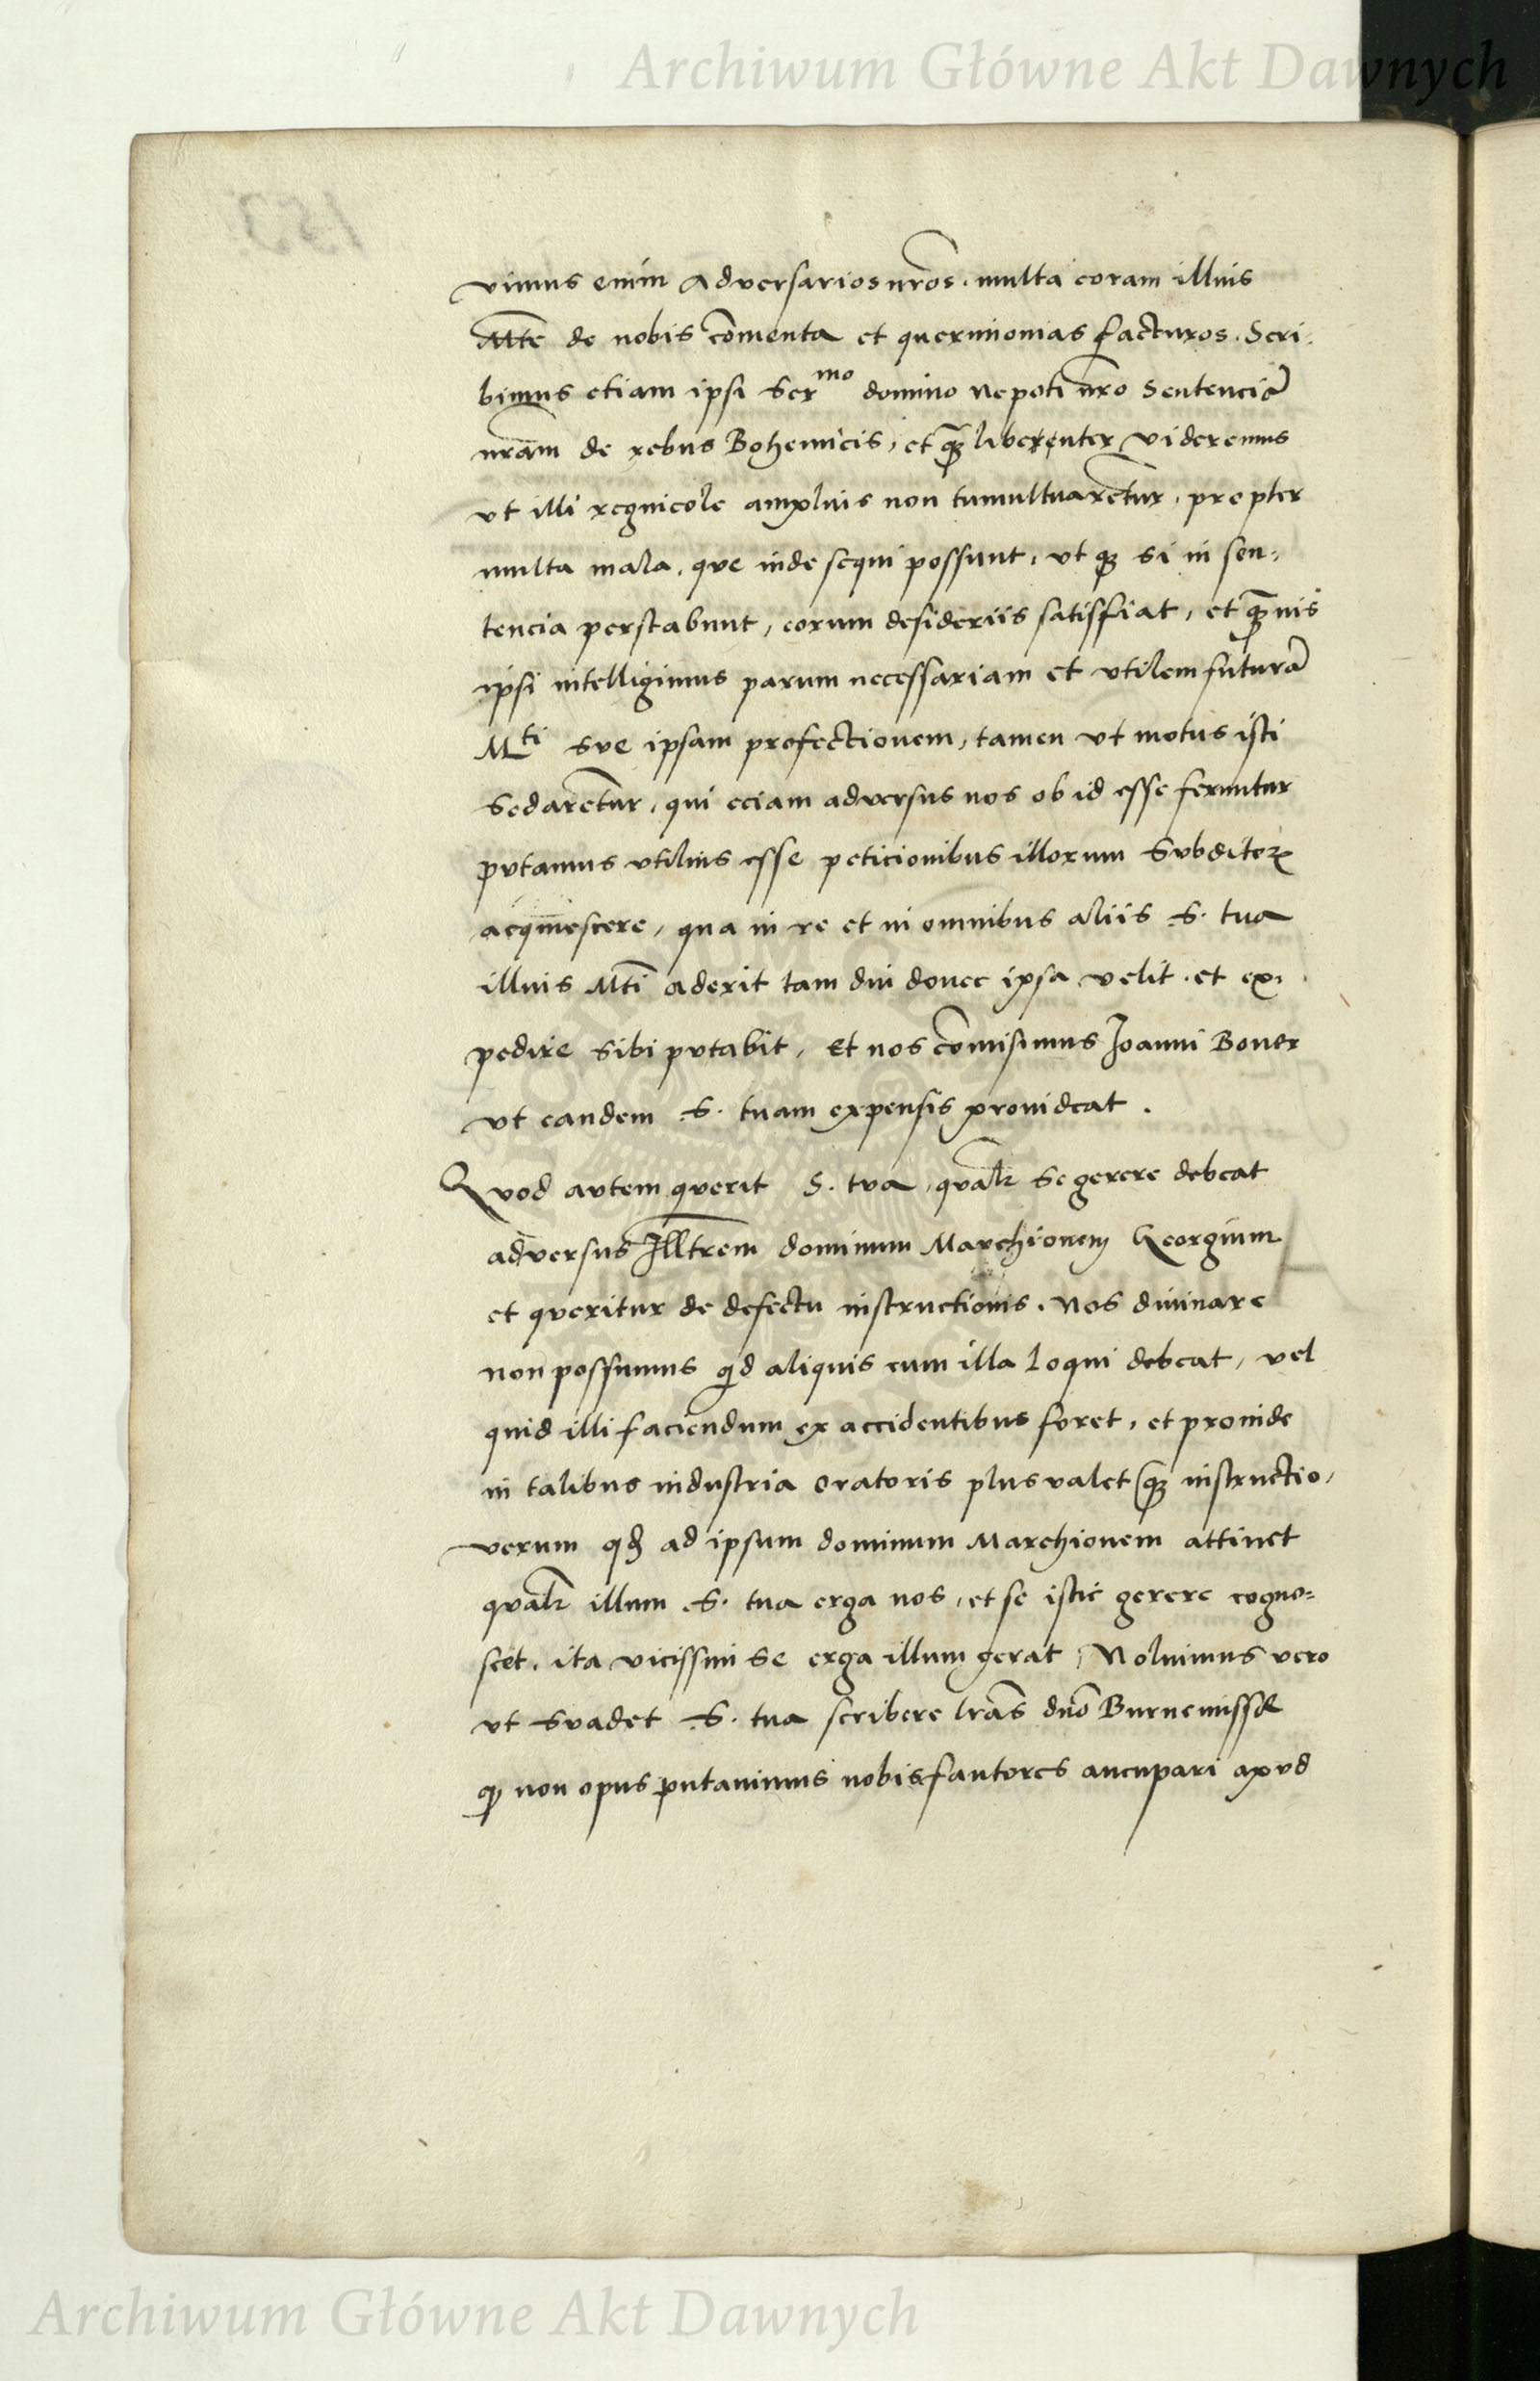 Archiwum Główne Akt Dawnych
153
vimus enim adversarios nr̄os. multa coram illius
Mte de nobis com̄enta et querimonias facturos. Scri-
bimus etiam ipsi Ser^mo domino Nepoti nr̄o Sentenciā
nr̄am de rebus Bohemicis, et q̄ȝ libenter videremus
ut illi regnicole amplius non tumultuarentur, propter
multa mala, que inde sequi possunt, ut qȝ si in sen-
tencia perstabunt, eorum desideriis satisfiat, et q̄ȝvis
ipsi intelligimus parum necessariam et utilem futurā
M^ti Sve ipsam profectionem, tamen ut motus isti
Sedarentur, qui eciam adversus nos ob id esse feruntur
putamus utilius esse peticionibus illorum Subditoꝝ
acquiescere, qua in re et in omnibus aliis S. tua
illius Mti aderit tam diu donec ipsa velit. et ex-
pedire sibi putabit, Et nos com̄isimus Joanni Boner
ut eandem S. tuam expensis provideat.
Quod autem querit S. tua, qualr̄ Se gerere debeat
adversus Illtrem dominum Marchionem Georgium
et queritur de defectu instructionis. Nos divinare
non possumus qd aliquis cum illa loqui debeat, vel
quid illi faciendum ex accidentibus foret, et proinde
in talibus industria Oratoris plus valet qȝ instructio,
verum qd ad ipsum dominum Marchionem attinet
qualr̄ illum S. tua erga nos, et se istic gerere cogno=
scet. ita vicissim se erga illum gerat, Noluimus vero
ut Suadet S. tua scribere lrās dn̄o Burnemissa
qȝ non opus putavimus nobis fautores aucupari apud
Archiwum Główne Akt Dawnych